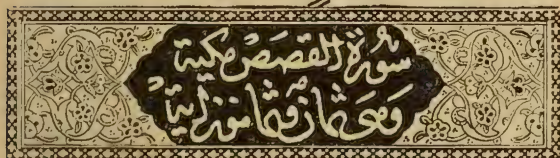 سُورَةُ القَصَصِ مَكِيَّة
وَهِيَ ثَمَانٌ وَثَمَانُونَ اٰيَة